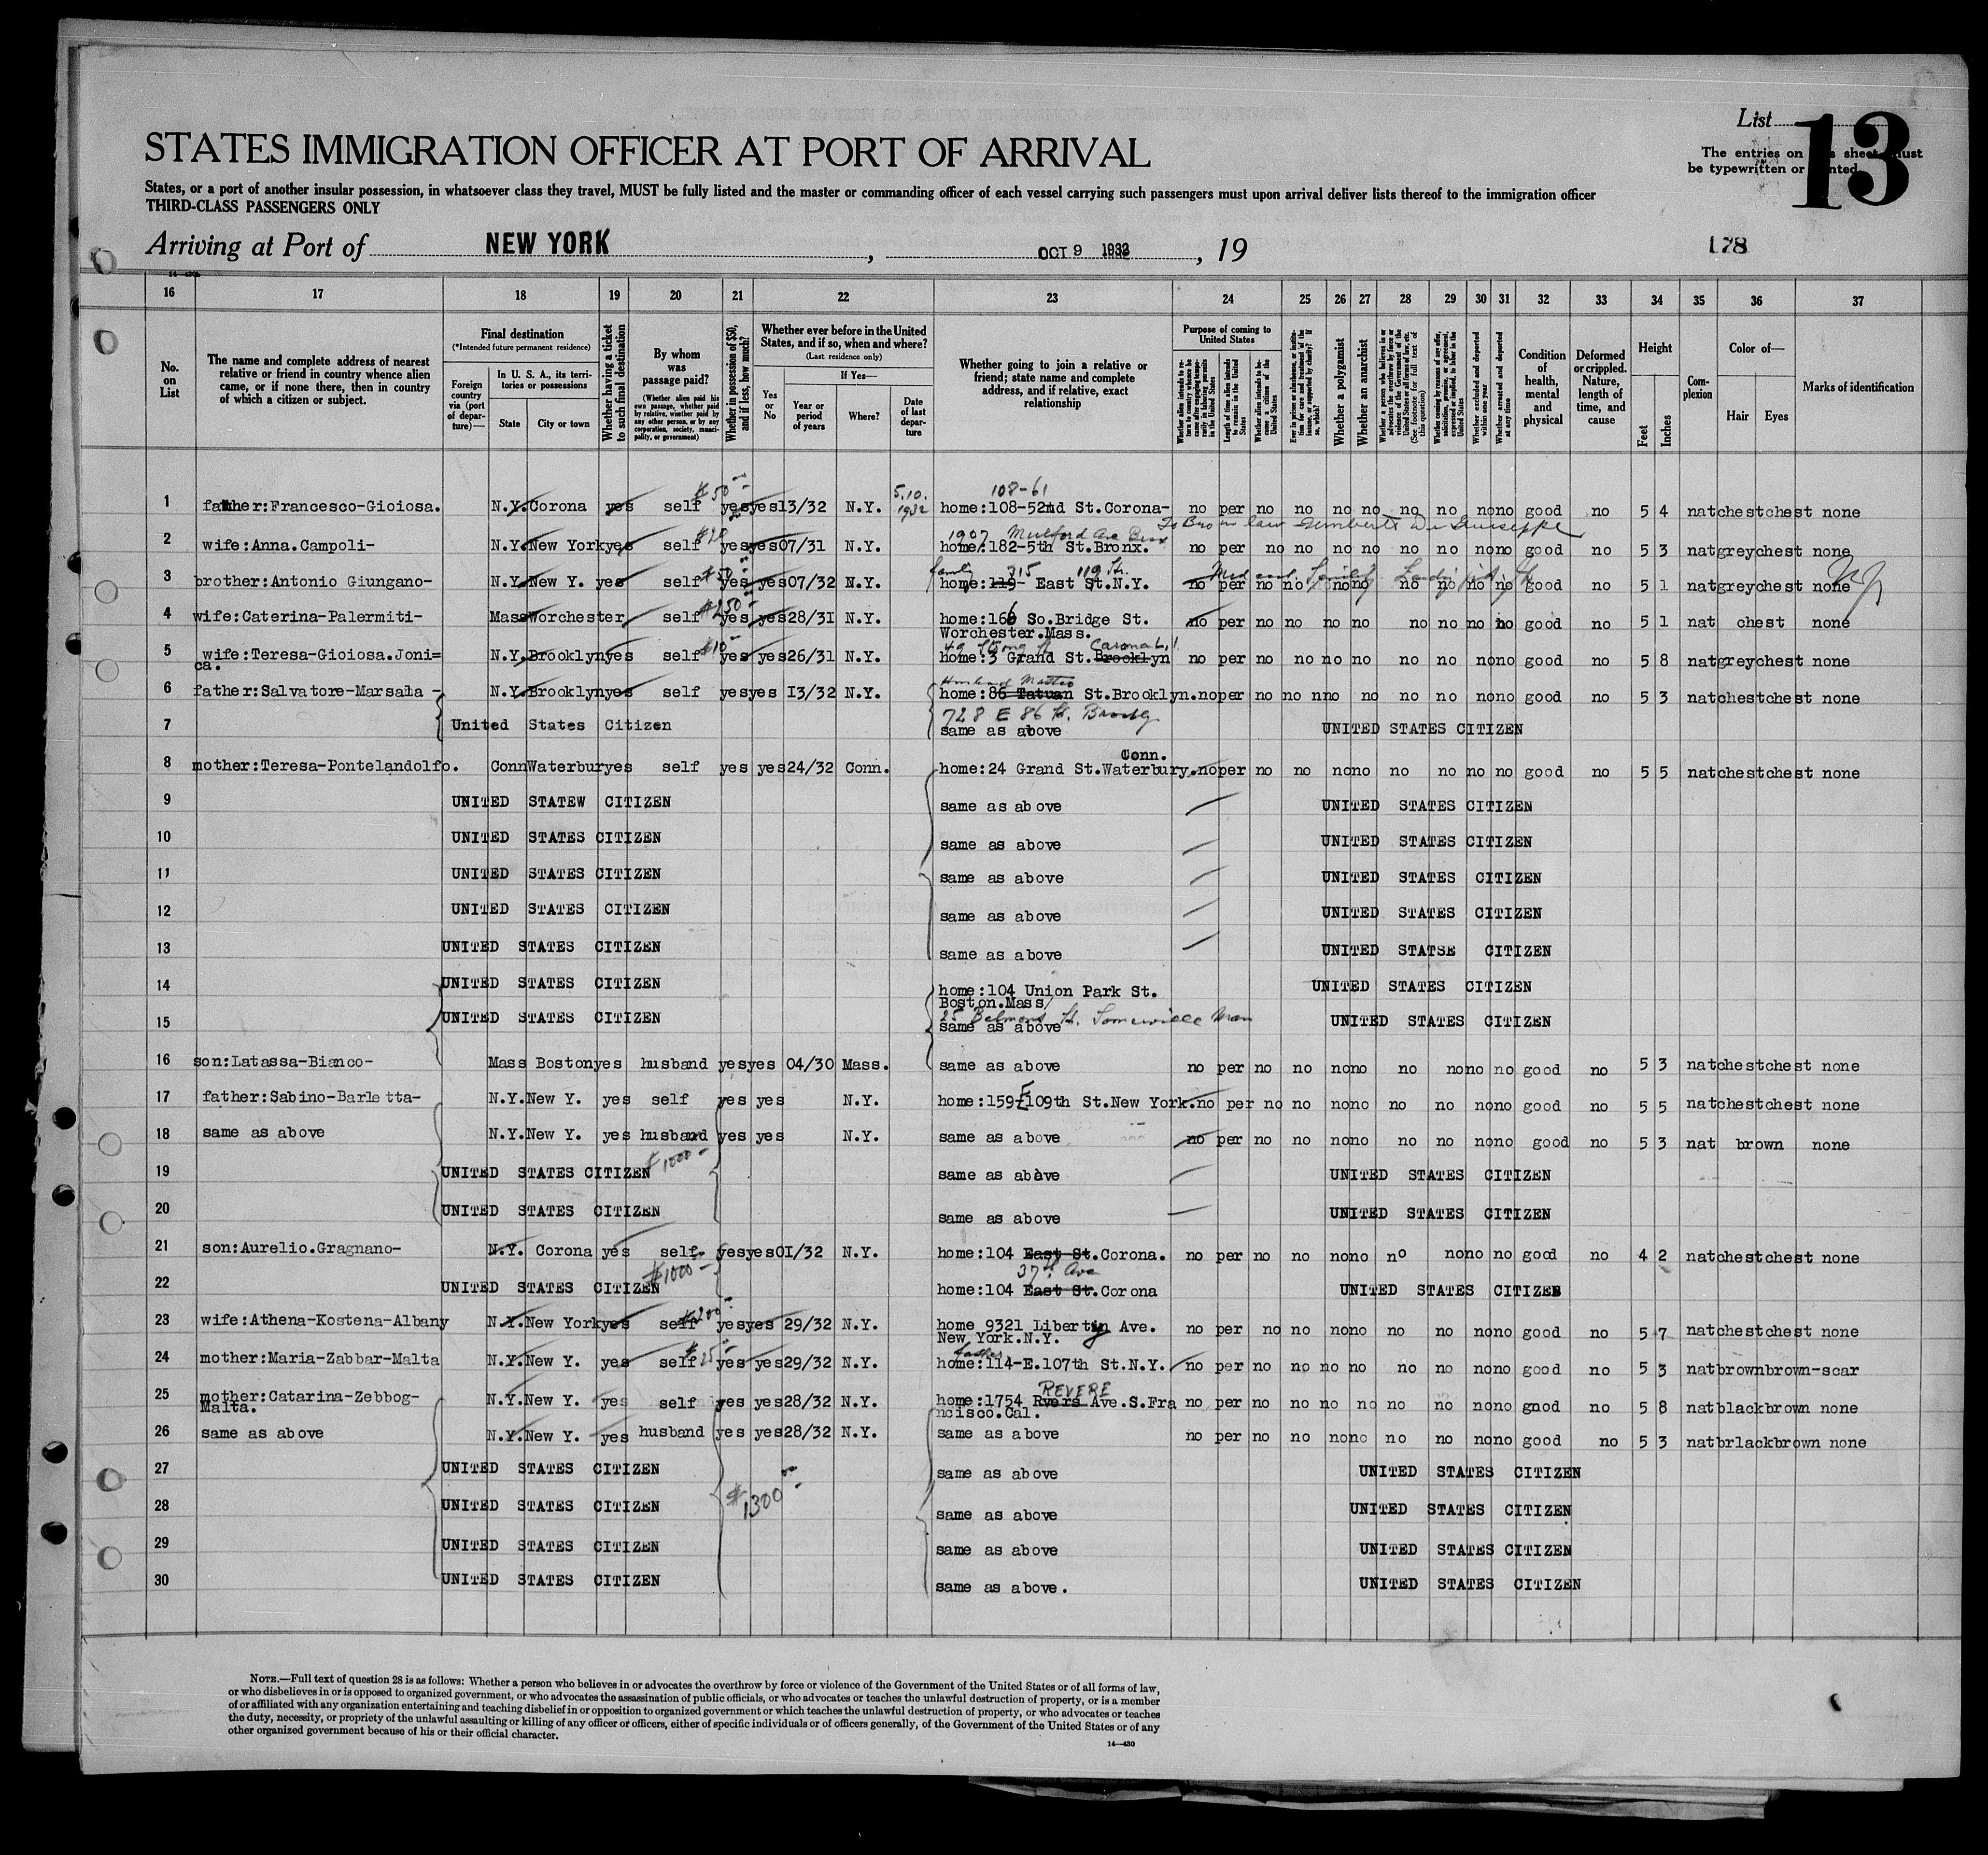 List 13
STATES IMMIGRATION OFFICER AT PORT OF ARRIVAL
The entries on sheet must
be typewritten or
States, or a port of another insular possession, in whatsoever class they travel, MUST be fully listed and the master or commanding officer of each vessel carrying such passengers must upon arrival deliver lists thereof to the immigration officer
THIRD-CLASS PASSENGERS ONLY
Arriving at Port of NEW YORK, OCT 9 1932, 19
178
16 17 18 19 20 21 22 23 24 25 26 27 28 29 30 31 32 33 34 35 36 37
No. on List
The name and complete address of nearest relative or friend in country whence alien came, or if none there, then in country of which a citizen or subject.
Final destination
(*Intended future permanent residence)
Foreign country via (port of departure)—
In U. S. A., its territories or possessions
State
City or town
Whether having a ticket to such final destination
By whom was passage paid?
(Whether alien paid his own passage, whether paid by relative, whether paid by any other person, or by any corporation, society, municipality, or government)
Whether in possession of $50, and if less, how much?
Whether ever before in the United States, and if so, when and where?
(Last residence only)
Yes or No
If Yes—
Year or period of years
Where?
Date of last departure
Whether going to join a relative or friend; state name and complete address, and if relative, exact relationship
Purpose of coming to United States
Whether a polygamist
Whether an anarchist
Condition of health, mental and physical
Deformed or crippled. Nature, length of time, and cause
Height
Feet
Inches
Complexion
Color of—
Hair
Eyes
Marks of identification
$50 5.10. 1932 108-61
1 father:Francesco-Gioiosa. N.Y. Corona yes self yes yes 13/32 N.Y. home:108-52nd St.Corona- no per no no no no no no no no good no 5 4 nat chest chest none
1907 Mulford Ave
2 wife:Anna.Campoli- N.Y. New York yes self yes yes 07/31 N.Y. home:182-5th St.Bronx. no per no no no no no no no no good no 5 3 nat grey chest none
family 315 119 St.
3 brother:Antonio Giungano- N.Y. New Y. yes self $50 yes yes 07/32 N.Y. home:119- East St.N.Y. no per no no no no no no no no good no 5 1 nat grey chest none
4 wife:Caterina-Palermiti- Mass Worchester self $250 yes yes 28/31 N.Y. home:166 So.Bridge St. no per no no no no no no no no good no 5 1 nat chest none
Worchester.Mass.
5 wife:Teresa-Gioiosa.Joni= N.Y. Brooklyn yes self $10 yes yes 26/31 N.Y. home:3 Grand St.Brooklyn no per no no no no no no no no good no 5 8 nat grey chest none
ca.
Husband Matteo
6 father:Salvatore-Marsala - N.Y. Brooklyn yes self yes yes 13/32 N.Y. home:86 Tatuan St.Brooklyn. no per no no nno no no no no no good no 5 3 nat chest chest none
728 E 86 St.
7 United States Citizen same as above UNITED STATES CITIZEN
Conn.
8 mother:Teresa-Pontelandolfo. Conn Waterbur yes self yes yes 24/32 Conn. home:24 Grand St.Waterbury. no per no no no no no no no no good no 5 5 nat chest chest none
9 UNITED STATEW CITIZEN same as above UNITED STATES CITIZEN
10 UNITED STATES CITIZEN same as above UNITED STATES CITIZEN
11 UNITED STATES CITIZEN same as above UNITED STATES CITIZEN
12 UNITED STATES CITIZEN same as above UNITED STATES CITIZEN
13 UNITED STATES CITIZEN same as above UNITED STATSE CITIZEN
14 UNITED STATES CITIZEN home:104 Union Park St. UNITED STATES CITIZEN
Boston.Mass/
15 UNITED STATES CITIZEN same as above UNITED STATES CITIZEN
16 son:Latassa-Bianco- Mass Boston yes husband yes yes 04/30 Mass. same as above no per no no no no no no no no good no 5 3 nat chest chest none
17 father:Sabino-Barletta- N.Y. New Y. yes self yes yes N.Y. home:159-E109th St.New York. no per no no no no no no no no good no 5 5 nat chest chest none
18 same as above N.Y. New Y. yes husband yes yes N.Y. same as above no per no no no no no no no no good no 5 3 nat brown none
$1000-
19 UNITED STATES CITIZEN same as above UNITED STATES CITIZEN
20 UNITED STATES CITIZEN same as above UNITED STATES CITIZEN
21 son:Aurelio.Gragnano- N.Y. Corona yes self yes yes 01/32 N.Y. home:104 East St.Corona. no per no no no no no no no no good no 4 2 nat chest chest none
$1000- 37th Ave
22 UNITED STATES CITIZEN home:104 East St.Corona UNITED STATES CITIZEN
$200
23 wife:Athena-Kostena-Albany N.Y. New York yes self yes yes 29/32 N.Y. home 9321 Liberty Ave. no per no no no no no no no no good no 5 7 nat chest chest none
New York.N.Y.
24 mother:Maria-Zabbar-Malta N.Y. New Y. yes self yes yes 29/32 N.Y. home:114-E.107th St.N.Y. no per no no no no no no no no good no 5 3 nat brown brown-scar
REVERE
25 mother:Catarina-Zebbog- N.Y. New Y. yes self yes yes 28/32 N.Y. home:1754 Rvers Ave.S.Fra no per no no no no no no no no gnod no 5 8 nat black brown none
Malta. ncisco.Cal.
26 same as above N.Y. New Y. yes husband yes yes 28/32 N.Y. same as above no per no no no no no no no no good no 5 3 nat brlack brown none
27 UNITED STATES CITIZEN same as above UNITED STATES CITIZEN
$1300
28 UNITED STATES CITIZEN same as above UNITED STATES CITIZEN
29 UNITED STATES CITIZEN same as above UNITED STATES CITIZEN
30 UNITED STATES CITIZEN same as above. UNITED STATES CITIZEN
NOTE.—Full text of question 28 is as follows: Whether a person who believes in or advocates the overthrow by force or violence of the Government of the United States or of all forms of law,
or who disbelieves in or is opposed to organized government, or who advocates the assassination of public officials, or who advocates or teaches the unlawful destruction of property, or is a member
of or affiliated with any organization entertaining and teaching disbelief in or opposition to organized government or which teaches the unlawful destruction of property, or who advocates or teaches
the duty, necessity, or propriety of the unlawful assaulting or killing of any officer or officers, either of specific individuals or of officers generally, of the Government of the United States or of any
other organized government because of his or their official character.
14—430